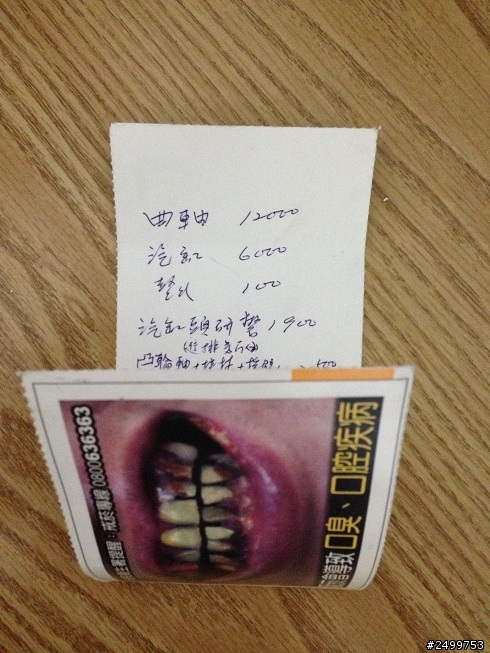 曲軸 12000
汽缸 6000
墊片 100
汽缸頭研磨 1900
進排氣
凸輪軸+
500
戒菸專線:0800636363
導致口臭、口腔疾病
#2499753